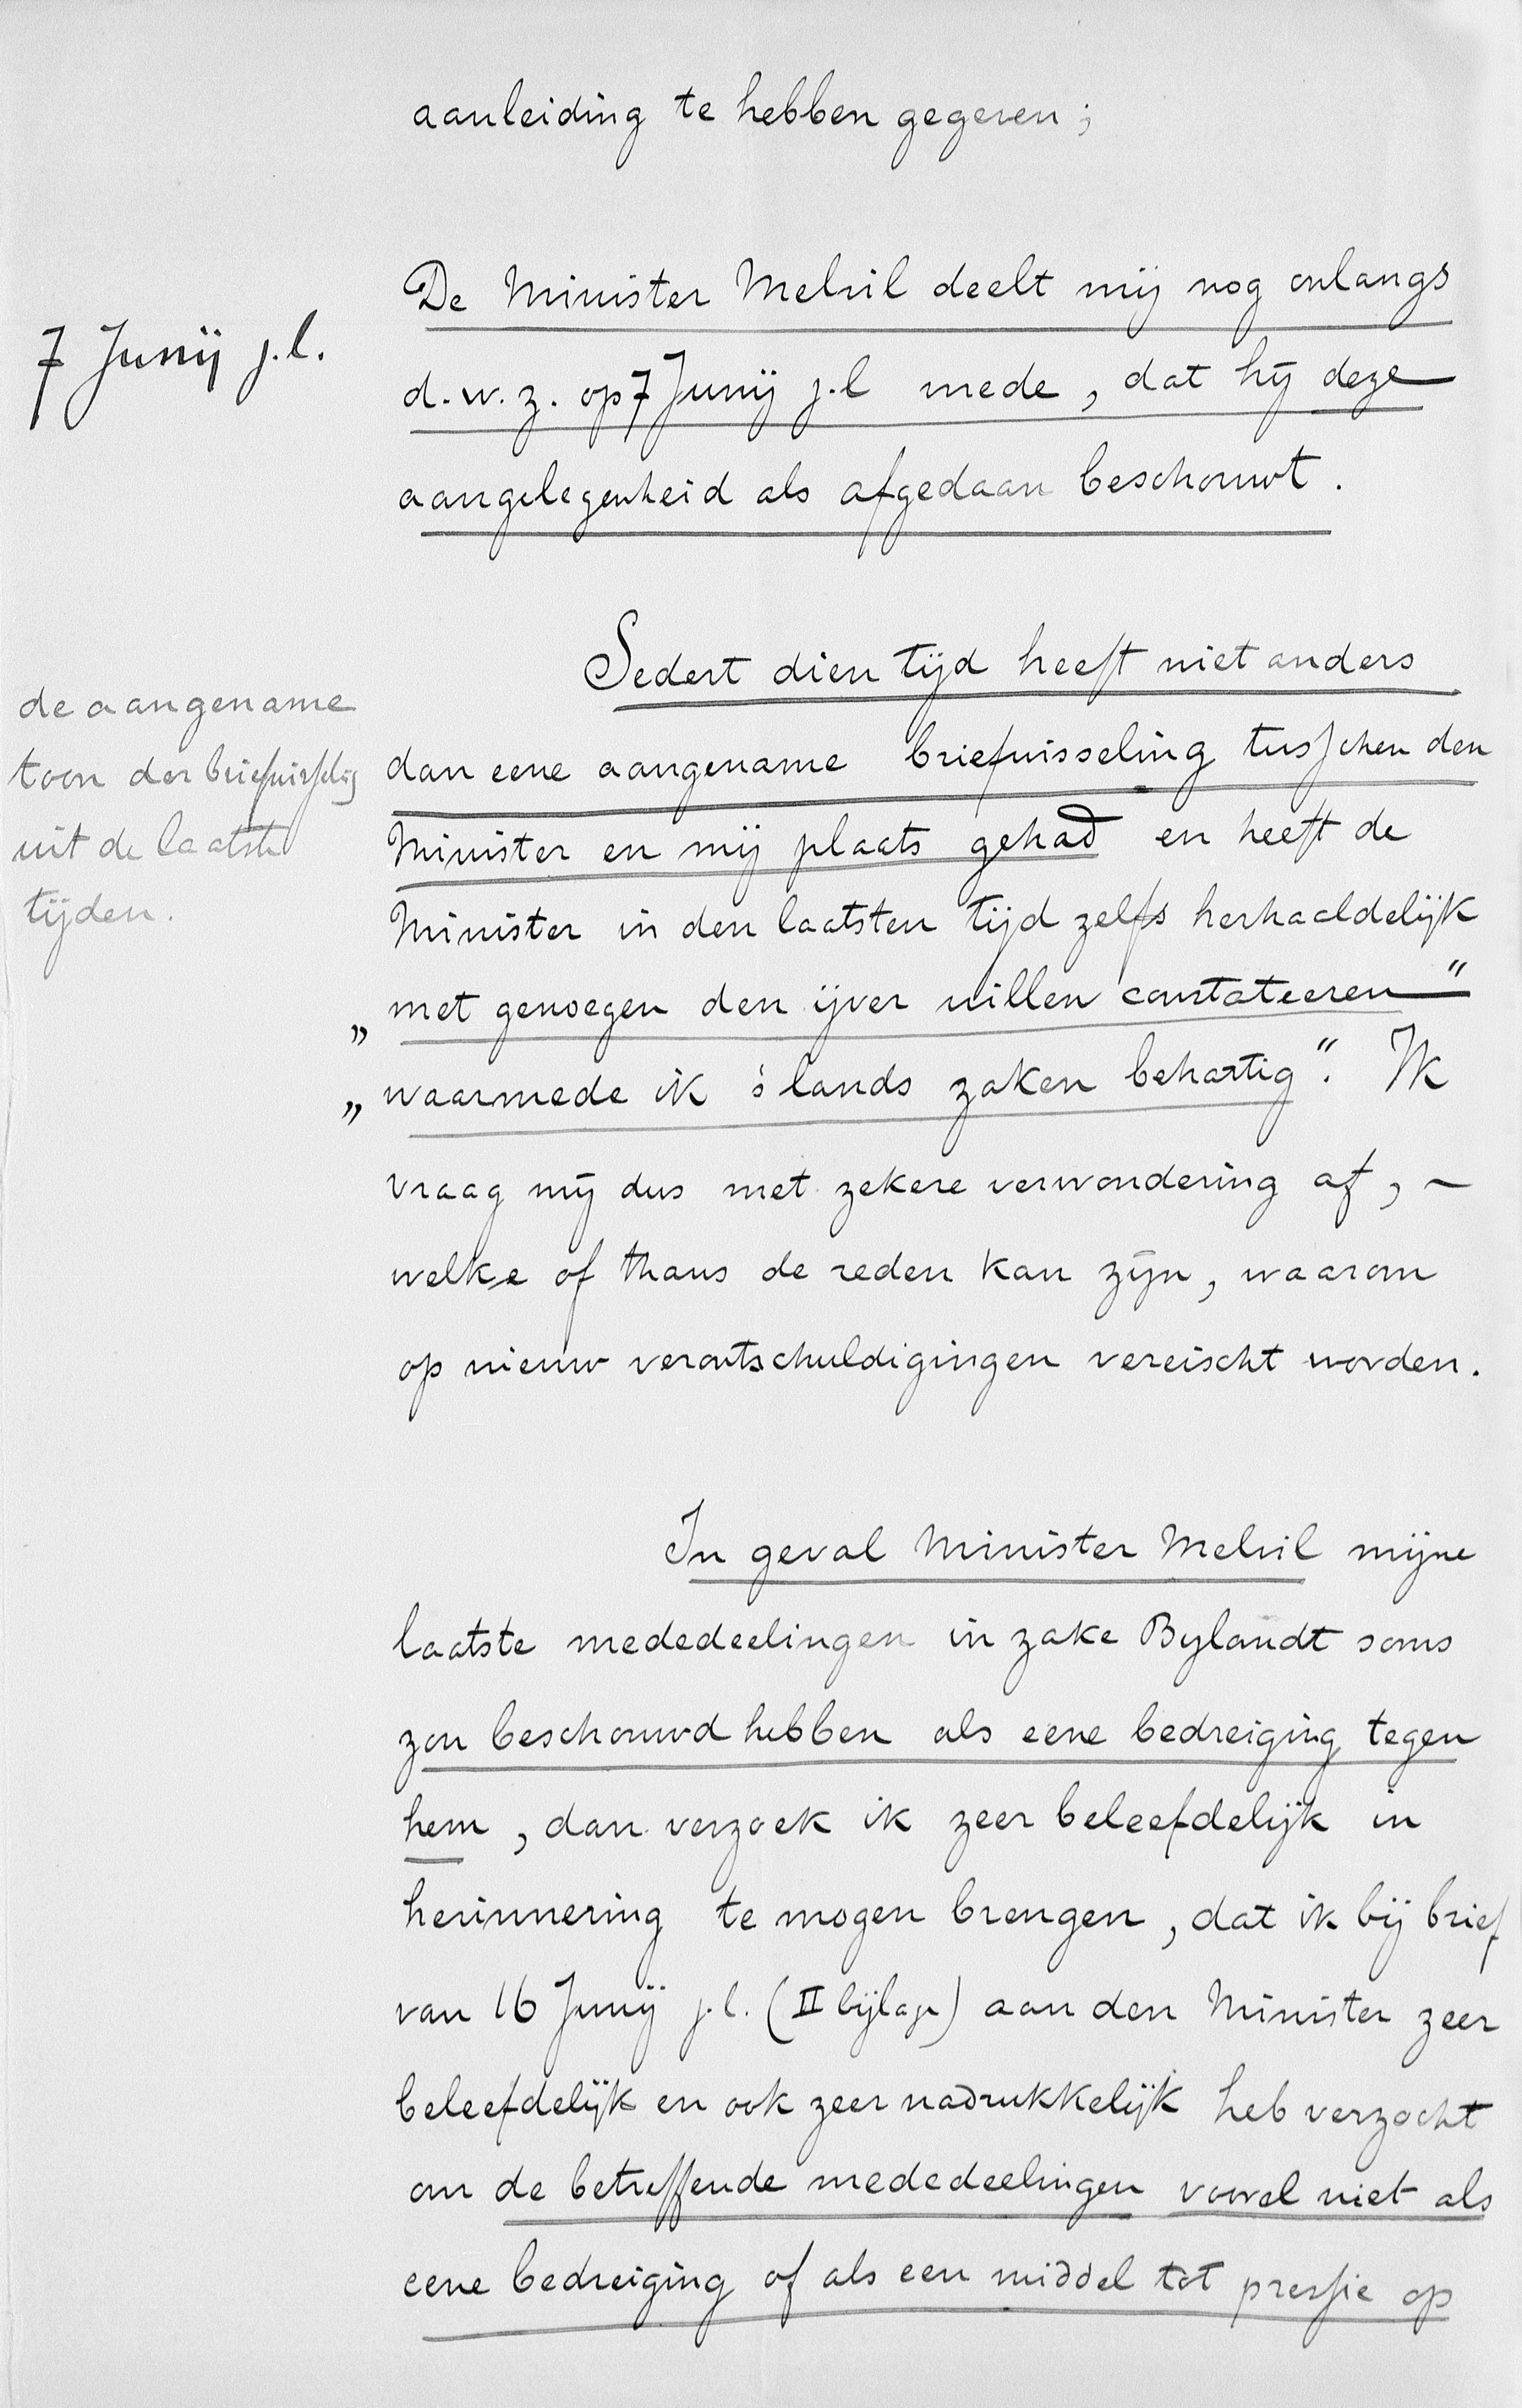 aanleiding te hebben gegeven;
De Minister Melvil deelt mij nog onlangs
7 Junij j.l.
d.w.z. op 7 Junij j.l mede, dat hij deze
aangelegenheid als afgedaan beschouwt.
Sedert dien tijd heeft niet anders
de aangename
toon der briefwisseling
uit de laatste
tijden.
dan eene aangename briefwisseling tusschen den
Minister en mij plaats gehad en heeft de
Minister in den laatsten tijd zelfs herhaaldelijk
„met genoegen den ijver willen constateeren"
„waarmede ik 's lands zaken behartig". Ik
vraag mij dus met zekere verwondering af, ~
welke of thans de reden kan zijn, waarom
op nieuw verontschuldigingen vereischt worden.
In geval Minister Melvil mijne
laatste mededeelingen in zake Bylandt soms
zou beschouwd hebben als eene bedreiging tegen
hem, dan verzoek ik zeer beleefdelijk in
herinnering te mogen brengen, dat ik bij brief
van 16 Junij j.l. (II bijlage) aan den Minister zeer
beleefdelijk en ook zeer nadrukkelijk heb verzocht
om de betreffende mededeelingen vooral niet als
eene bedreiging of als een middel tot pressie op